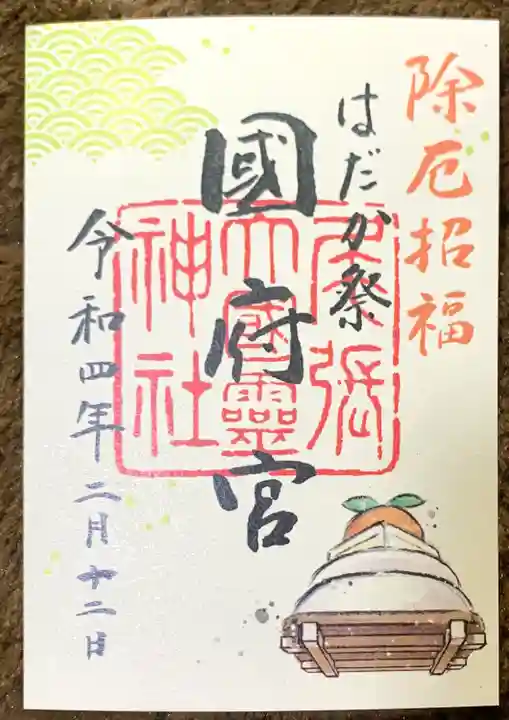 除厄招福
はだか祭
國府宮
尾張
大國霊
神社
令和四年二月十二日